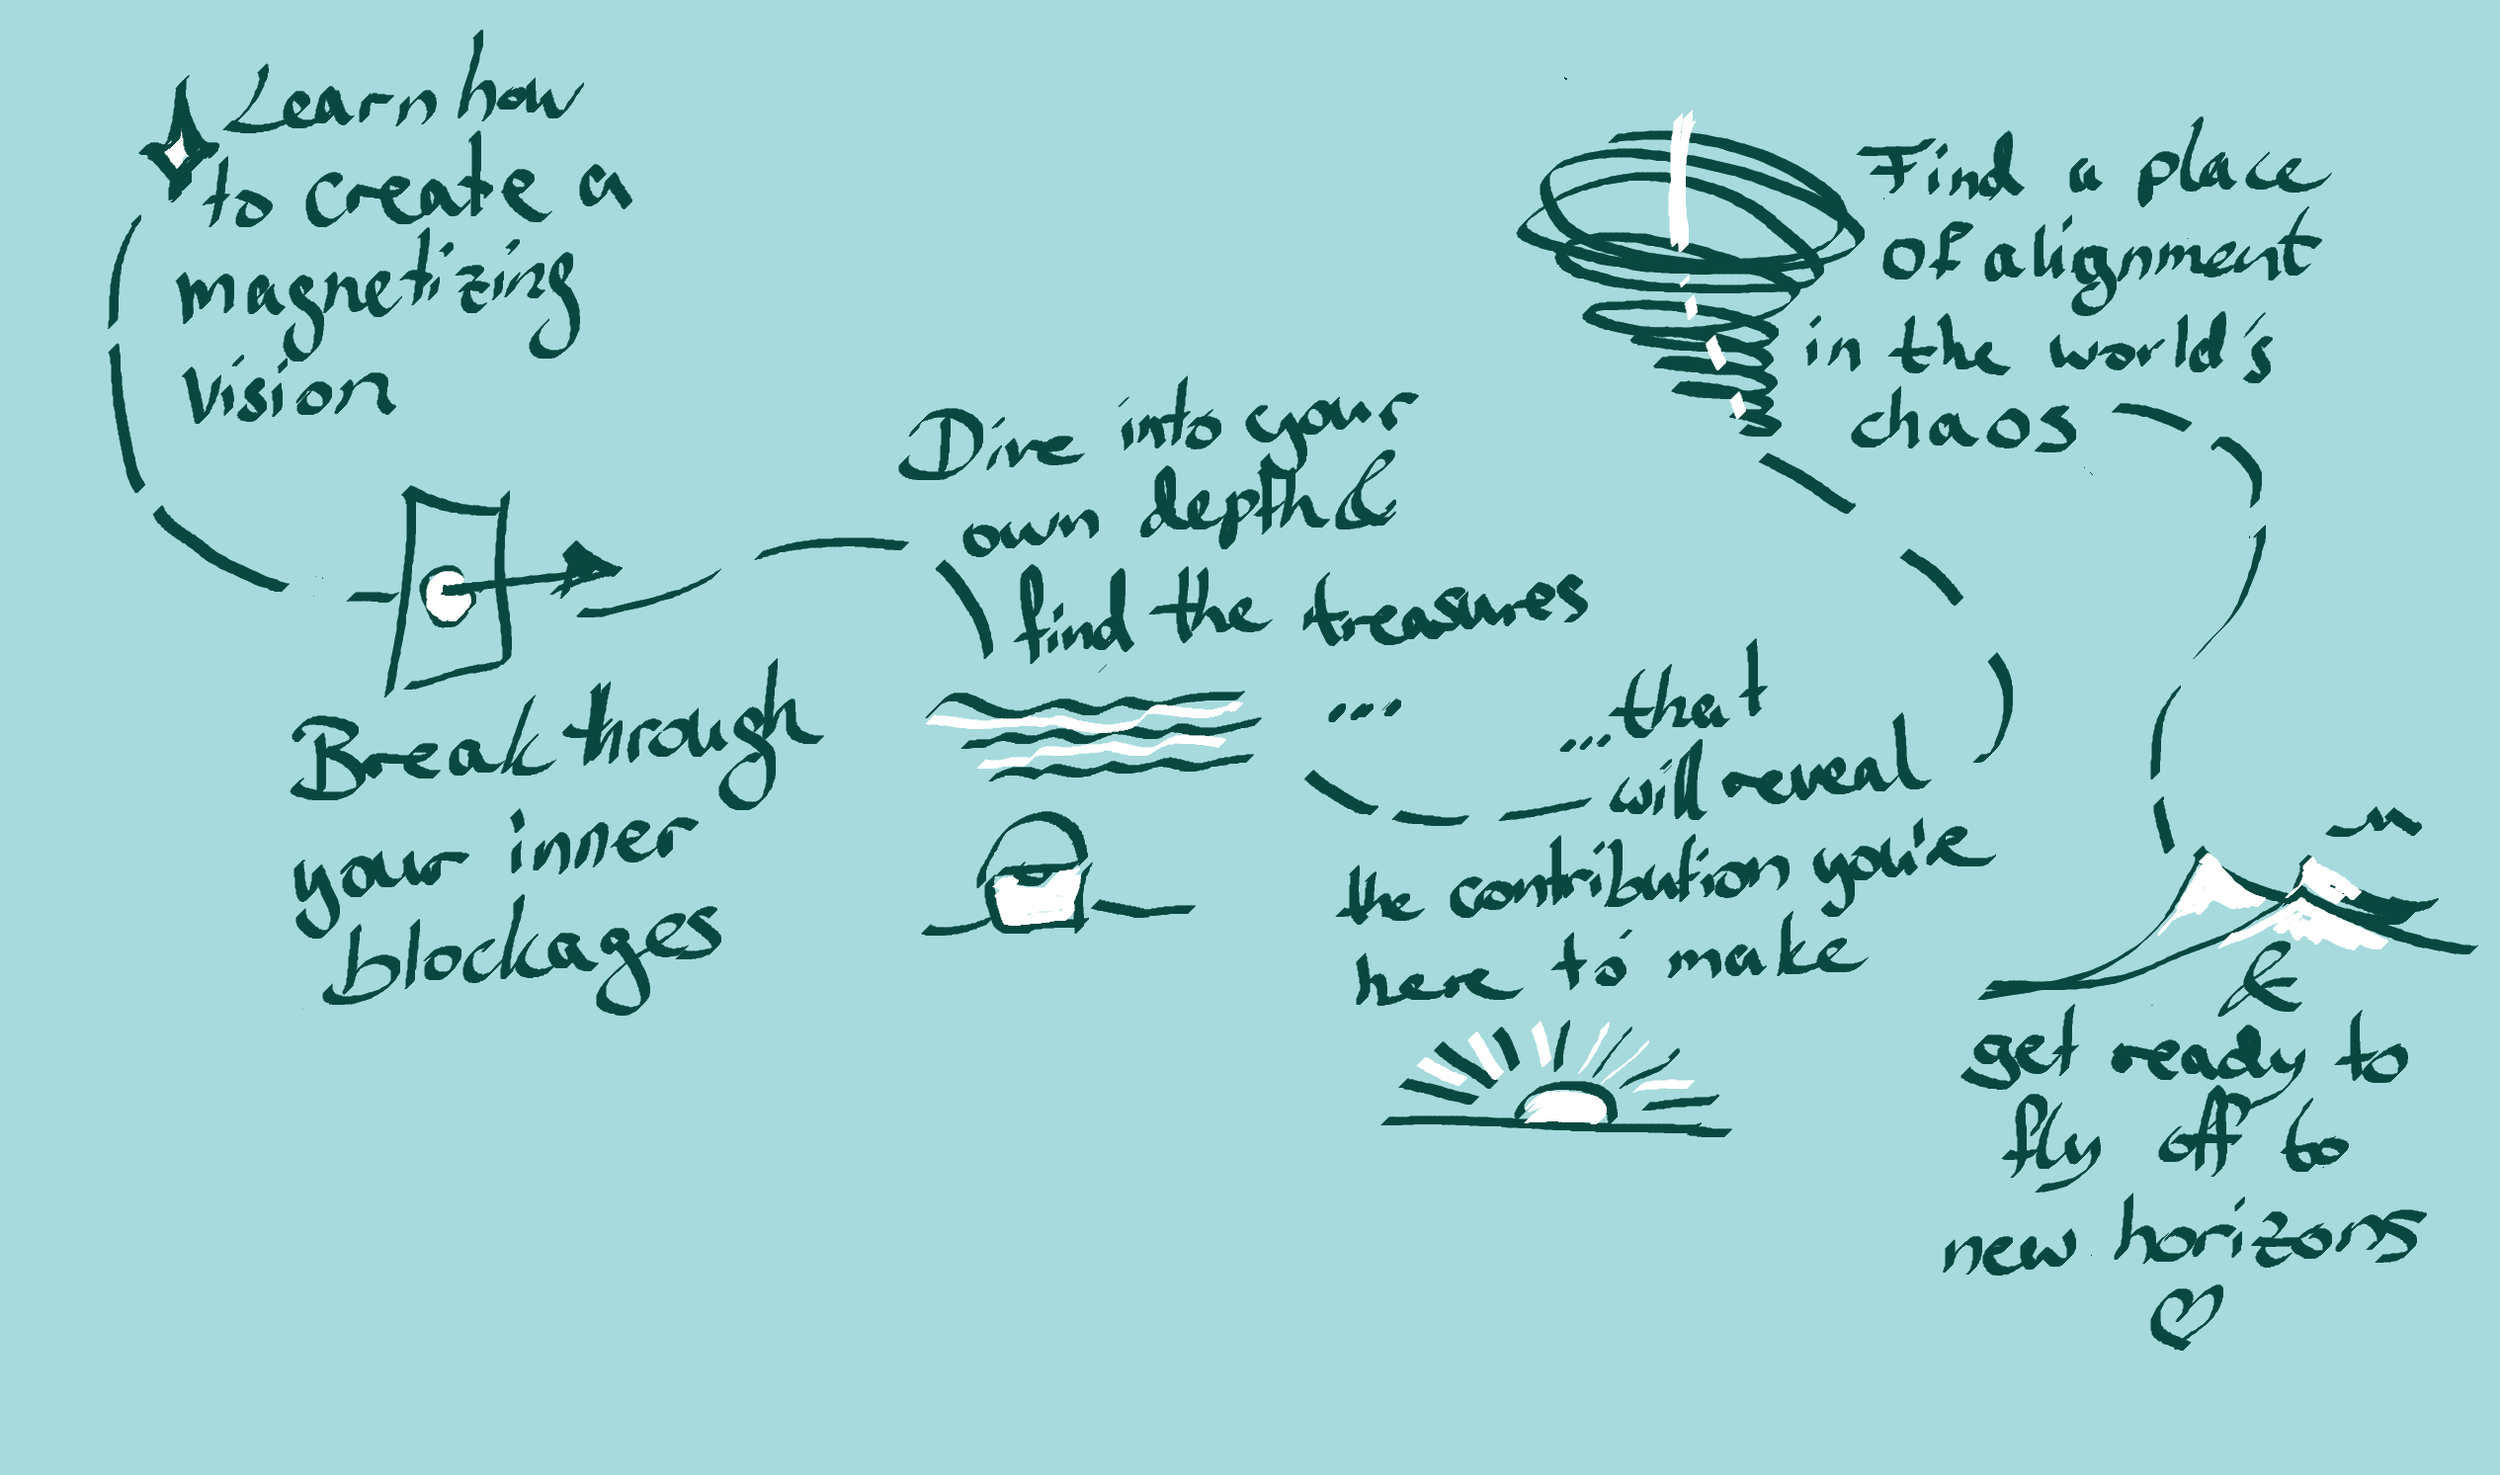 Learn how
to create a
magnetizing
Vision
Break through
your inner
blockages
Dive into your
own depth &
find the treasures
...
...that
will reveal
the contribution you're
here to make
Find a place
of alignment
in the world's
chaos
&
get ready to
fly off to
new horizons